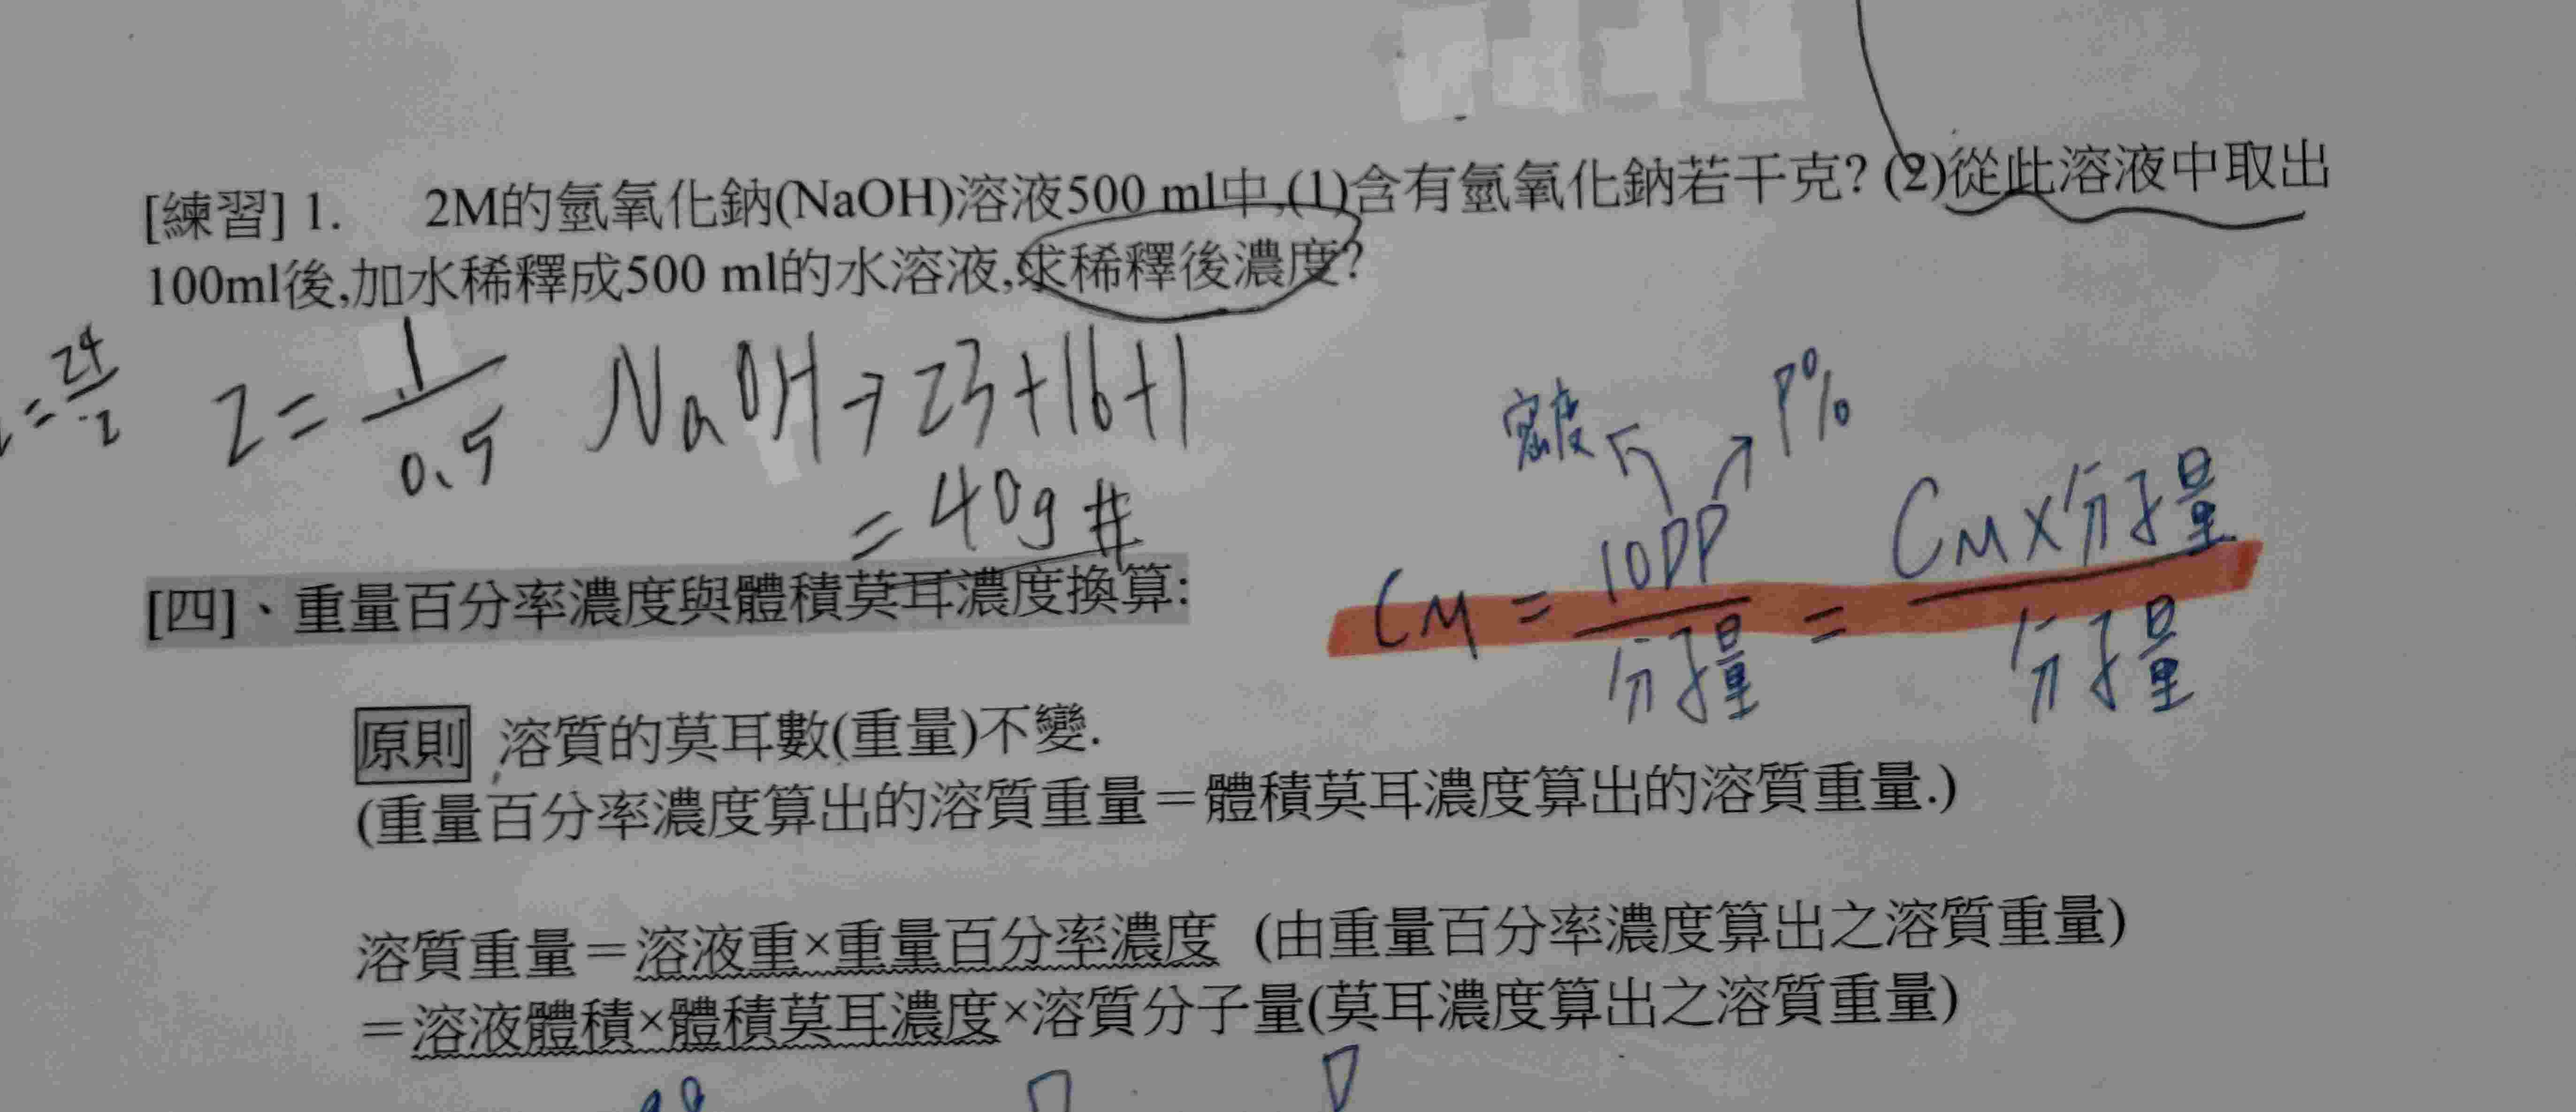 [練習] 1. 2M的氫氧化鈉(NaOH)溶液500 ml中,(1)含有氫氧化鈉若干克? (2)從此溶液中取出
100ml後,加水稀釋成500 ml的水溶液,求稀釋後濃度?
2 = 1/0.5 NaOH → 23+16+1
= 40g #
密度 P%
CM = 10DP/分子量 = CM×分子量/分子量
[四]、重量百分率濃度與體積莫耳濃度換算:
原則 溶質的莫耳數(重量)不變.
(重量百分率濃度算出的溶質重量＝體積莫耳濃度算出的溶質重量.)
溶質重量＝溶液重×重量百分率濃度 (由重量百分率濃度算出之溶質重量)
＝溶液體積×體積莫耳濃度×溶質分子量(莫耳濃度算出之溶質重量)